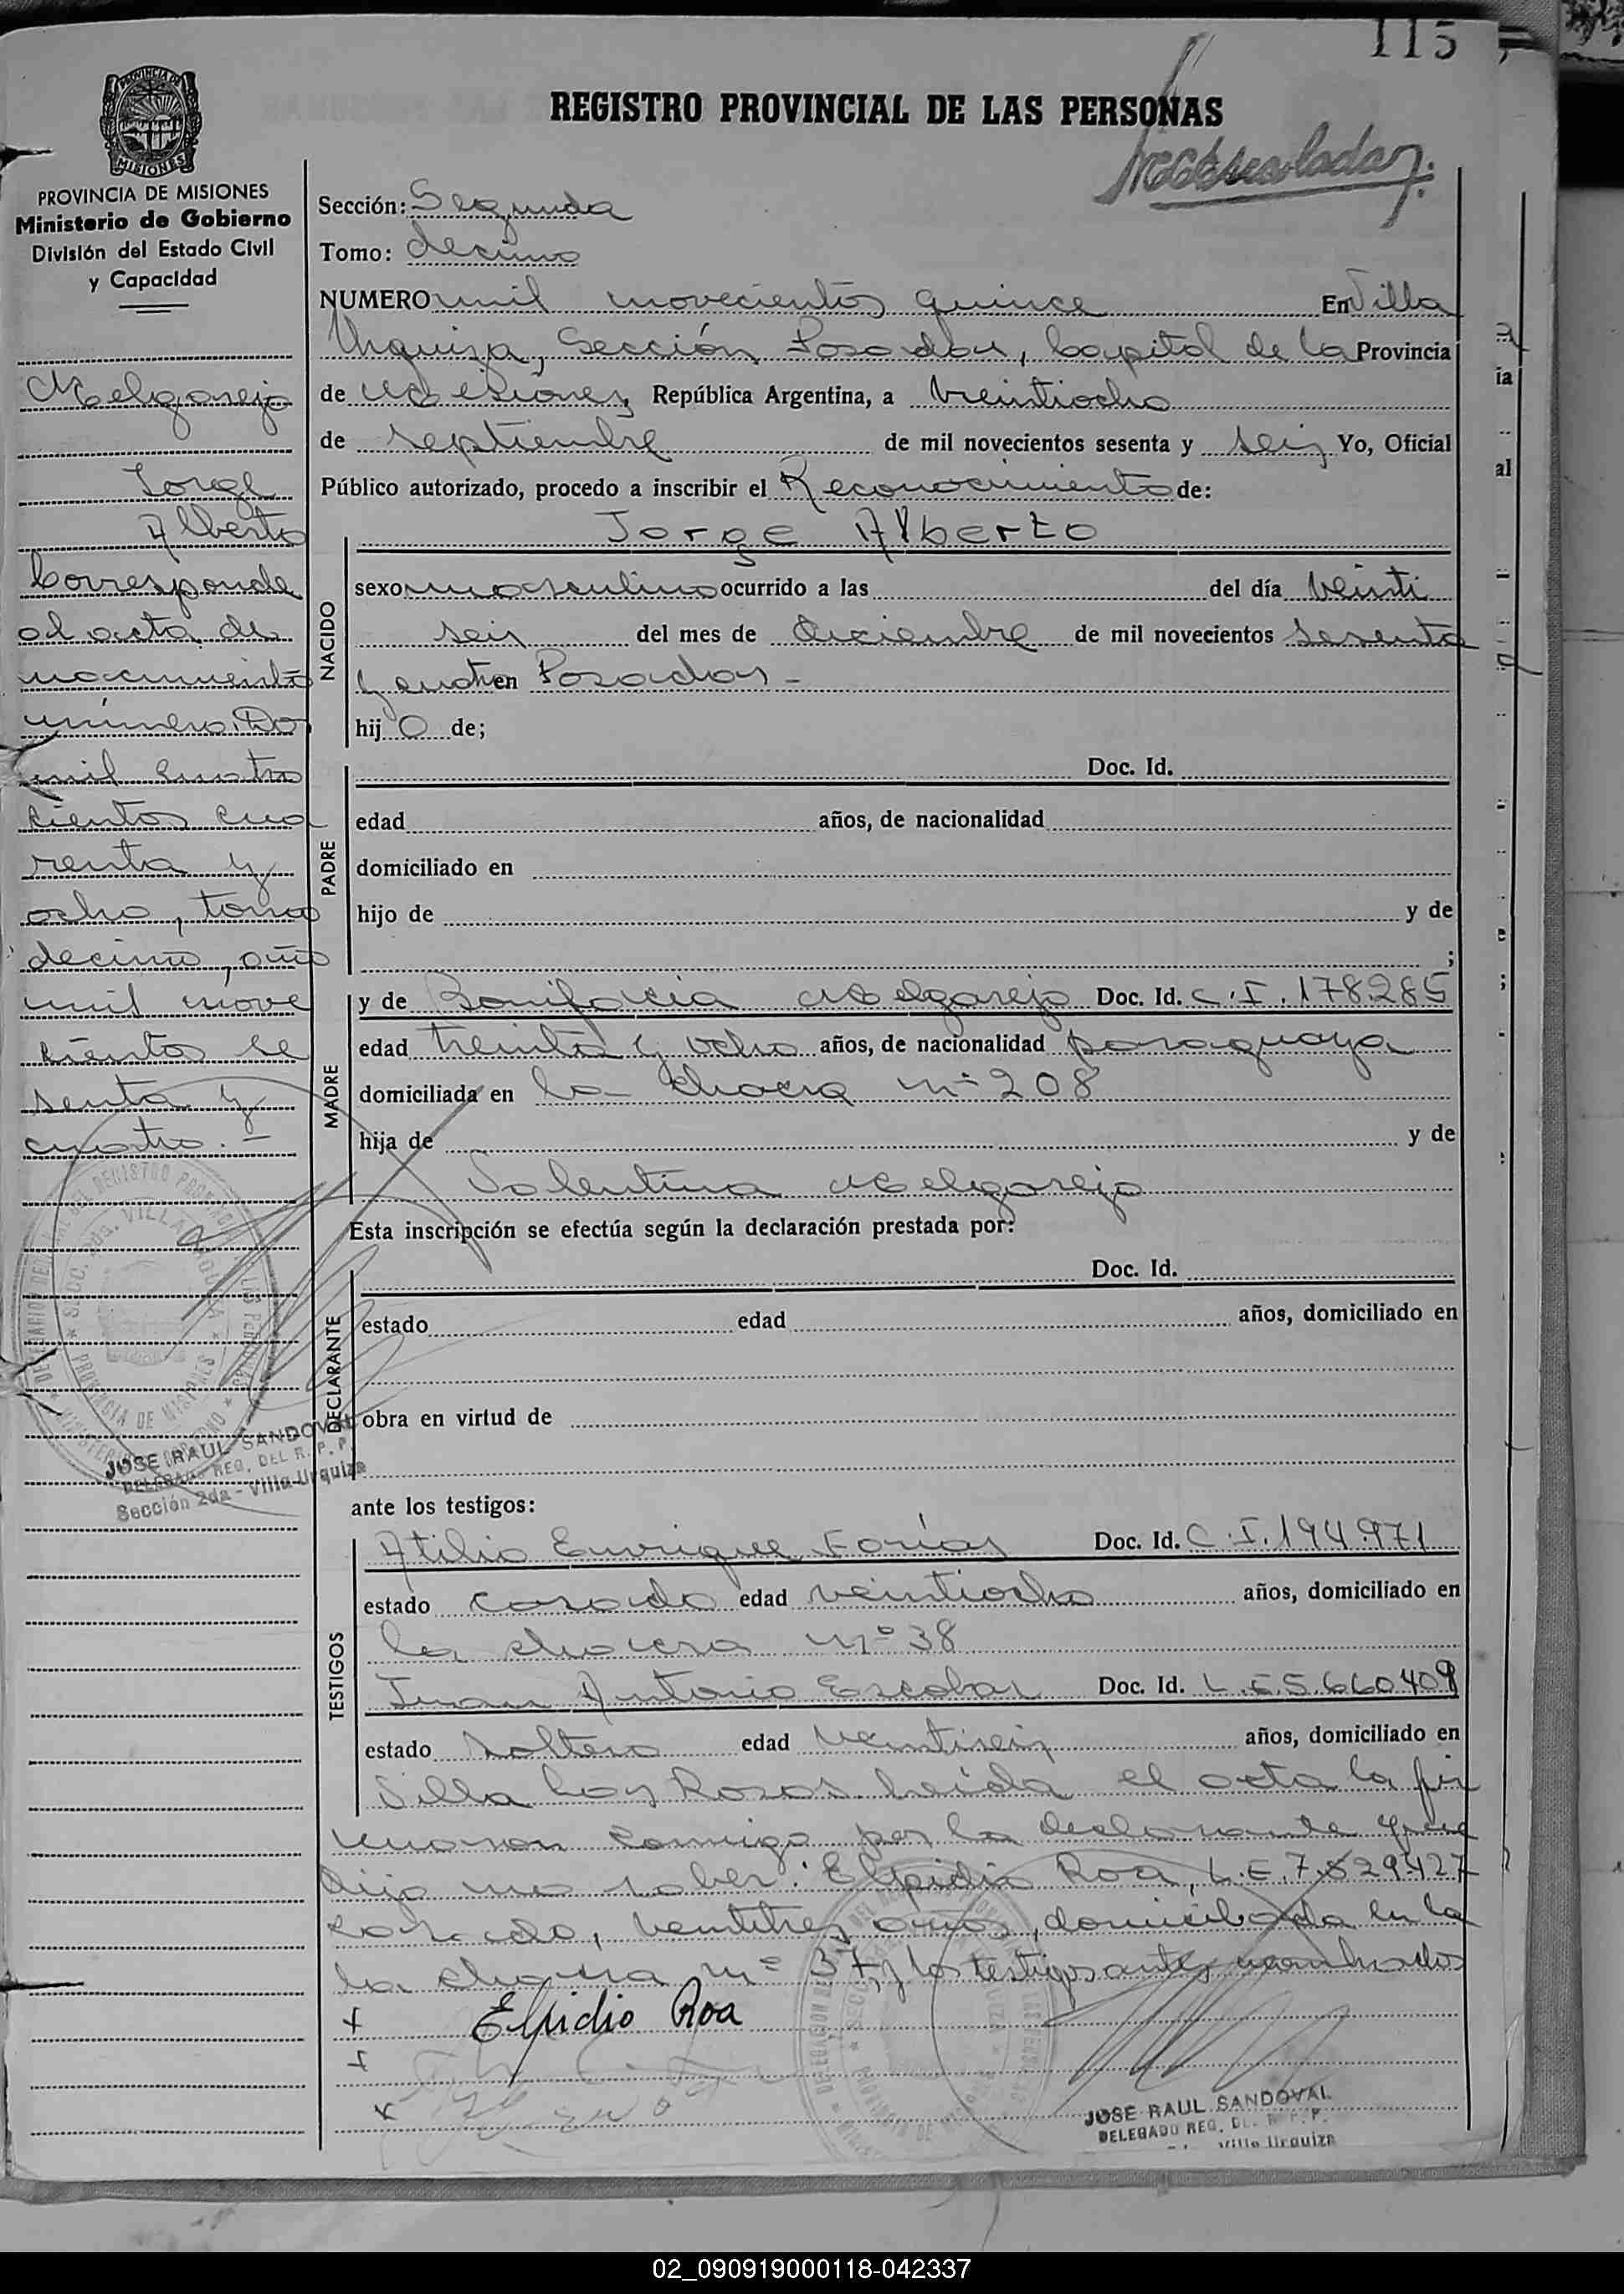 115
REGISTRO PROVINCIAL DE LAS PERSONAS
PROVINCIA DE MISIONES
Ministerio de Gobierno
División del Estado Civil
y Capacidad
Melgarejo
Jorge
Alberto
Corresponde
al acta de
nacimiento
número Dos
mil cuatro
cientos cua
renta y
ocho, tomo
decimo, año
mil nove
cientos se
senta y
cuatro.-
JOSE RAUL SANDOVAL
DELEGADO REG. DEL R. P. P.
Sección 2da - Villa Urquiza
Sección: Segunda
Tomo: decimo
NUMERO mil novecientos quince En Villa
Urquiza, Sección Posadas, Capital de la Provincia
de Misiones, República Argentina, a veintiocho
de septiembre de mil novecientos sesenta y seis Yo, Oficial
Público autorizado, procedo a inscribir el Reconocimiento de:
NACIDO
Jorge Alberto
sexo masculino ocurrido a las del día veinti
seis del mes de diciembre de mil novecientos sesenta
y cuatro en Posadas -
hijo de;
PADRE
Doc. Id.
edad años, de nacionalidad
domiciliado en
hijo de y de
;
MADRE
y de Bonifacia Melgarejo Doc. Id. C.I. 178.285
edad treinta y ocho años, de nacionalidad paraguaya
domiciliada en la chacra nº 208
hija de y de
Melgarejo
Esta inscripción se efectúa según la declaración prestada por:
DECLARANTE
Doc. Id.
estado edad años, domiciliado en
obra en virtud de
ante los testigos:
TESTIGOS
Atilio Enrique Farías Doc. Id. C.I. 194.971
estado casado edad veintiocho años, domiciliado en
la chacra nº 38
Juan Antonio Escobar Doc. Id. L.E. 5.660.409
estado soltero edad veintiseis años, domiciliado en
Villa Las Rosas. Leída el acta la fir
maron conmigo por la declarante que
dijo no saber: Elpidio Roa, L.E. 7.529.427
casado, ventitres años, domiciliado en la
la chacra nº 37, y los testigos antes nombrados
+ Elpidio Roa
+
x
JOSE RAUL SANDOVAL
DELEGADO REG. DEL R. P. P.
Villa Urquiza
02_090919000118-042337